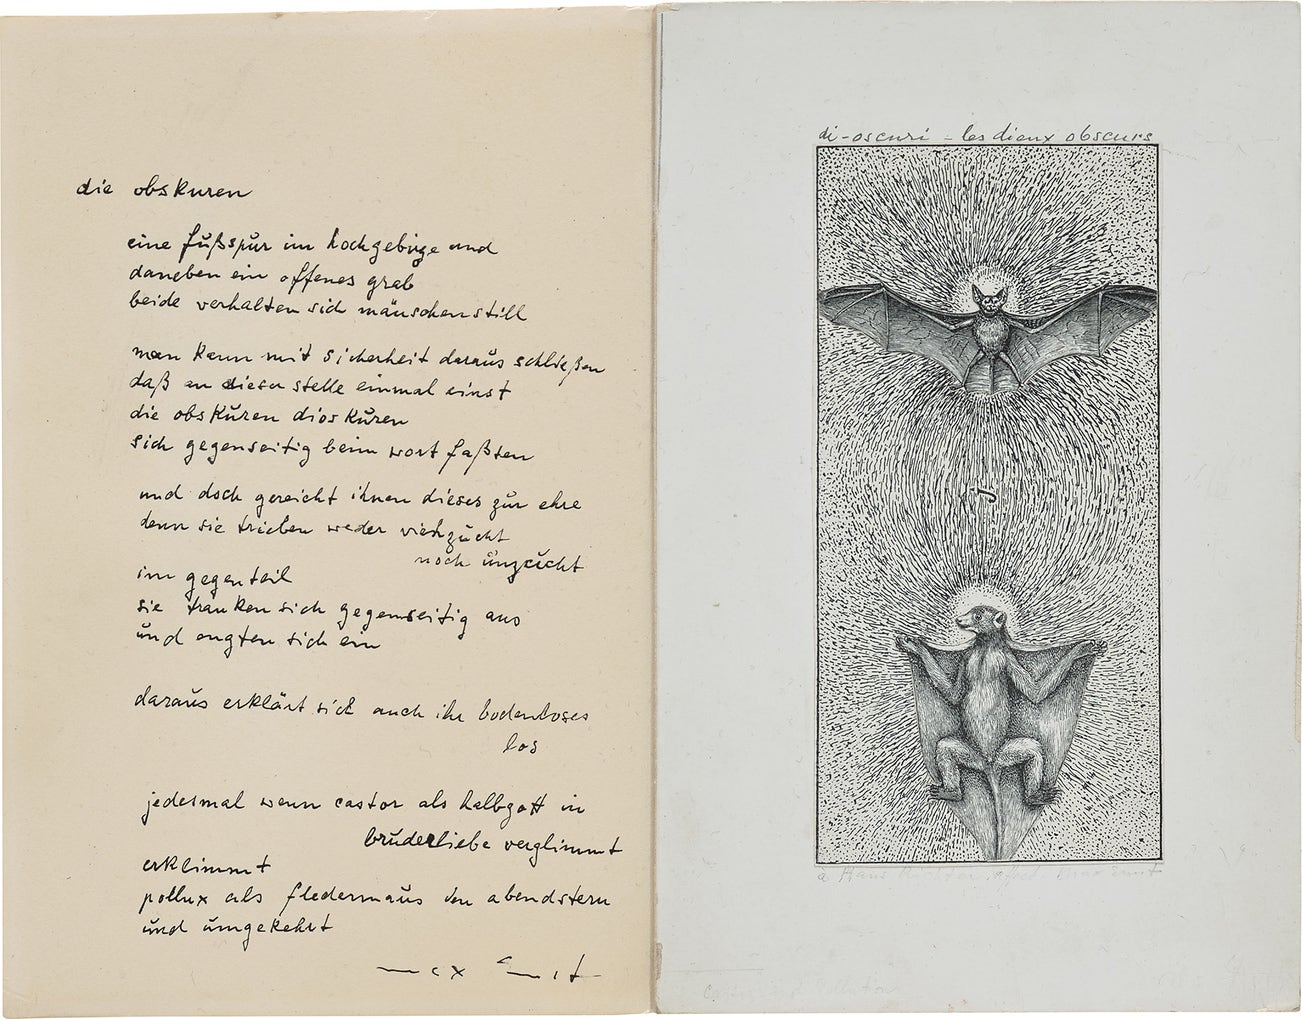 die obskuren
eine fußspur im hochgebirge und
daneben ein offenes grab
beide verhalten sich mäuschenstill
man kann mit sicherheit daraus schließen
daß an dieser stelle einmal einst
die obskuren dioskuren
sich gegenseitig beim wort faßten
und doch gereicht ihnen dieses zur ehre
denn sie trieben weder viehzucht
noch unzucht
im gegenteil
sie tranken sich gegenseitig aus
und engten sich ein
daraus erklärt sich auch ihr bodenloses
los
jedesmal wenn castor als halbgott in
bruderliebe verglimmt
erklimmt
pollux als fledermaus den abendstern
und umgekehrt
max ernst
di-oscuri = les dieux obscurs
à Hans Richter, max ernst